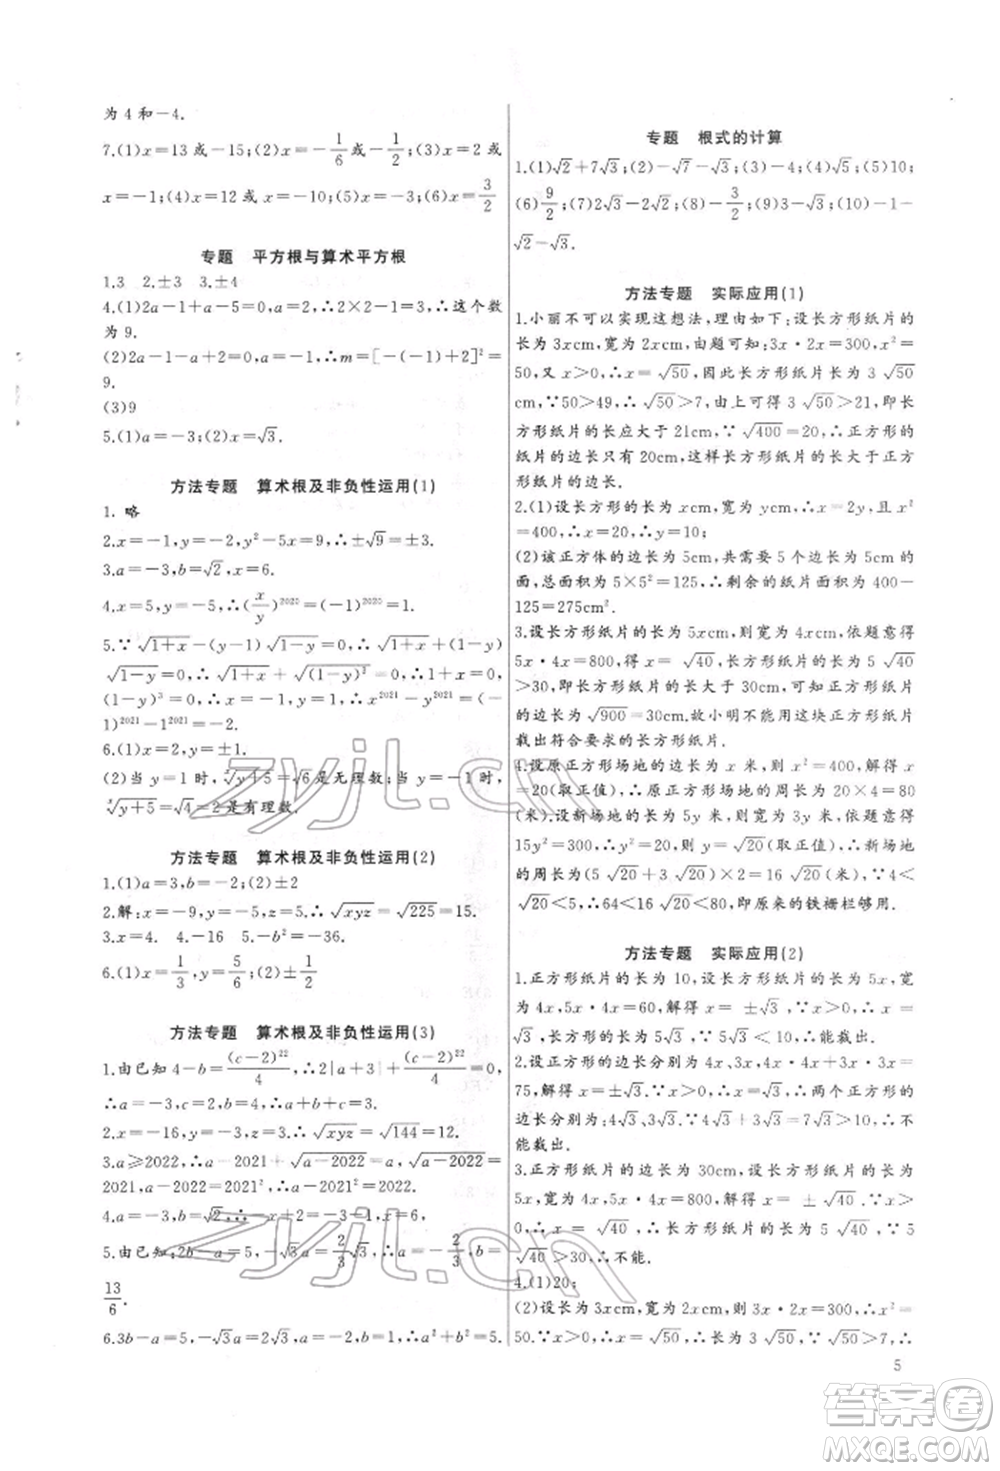 为 4 和－4.
7.(1)x＝13 或－15;(2)x＝－1/6 或－1/2;(3)x＝2 或
x＝－1;(4)x＝12 或 x＝－10;(5)x＝－3;(6)x＝3/2
专题 平方根与算术平方根
1.3 2.±3 3.±4
4.(1)2a－1＋a－5＝0,a＝2,∴2×2－1＝3,∴这个数
为 9.
(2)2a－1－a＋2＝0,a＝－1,∴m＝[－(－1)＋2]²＝
9.
(3)9
5.(1)a＝－3;(2)x＝√3.
方法专题 算术根及非负性运用(1)
1. 略
2.x＝－1,y＝－2,y²－5x＝9,∴±√9＝±3.
3.a＝－3,b＝√2,x＝6.
4.x＝5,y＝－5,∴(x/y)²⁰²⁵＝(－1)²⁰²⁵＝1.
5.∵√(1＋x)－(y－1)√(1－y)＝0,∴√(1＋x)＋(1－y)
√(1－y)＝0,∴√(1＋x)＋√((1－y)³)＝0,∴1＋x＝0,
(1－y)³＝0,∴x＝－1,y＝1,∴x²⁰²¹－y²⁰²¹＝(－
1)²⁰²¹－1²⁰²¹＝－2.
6.(1)x＝2,y＝±1.
(2)当 y＝1 时,ˣ√(y＋5)＝√6是无理数;当 y＝－1 时,
ˣ√(y＋5)＝√4＝2 是有理数.
方法专题 算术根及非负性运用(2)
1.(1)a＝3,b＝－2;(2)±2
2.解:x＝－9,y＝－5,z＝5.∴√xyz＝√225＝15.
3.x＝4. 4.－16 5.－b²＝－36.
6.(1)x＝1/3,y＝5/6;(2)±1/2
方法专题 算术根及非负性运用(3)
1.由已知 4－b＝(c－2)²²/4,∴2|a＋3|＋(c－2)²²/4＝0,
∴a＝－3,b＝4,c＝2,∴a＋b＋c＝3.
2.x＝－16,y＝－3,z＝3.∴√xyz＝√144＝12.
3.∵a≥2022,∴a－2021＋√(a－2022)＝a,√(a－2022)＝
2021,a－2022＝2021²∴a－2021²＝2022.
4.x＝－3,b＝√2,∴－x＋2＝－3－1＝6,
5.由已知:2b－a＝5,－√3a＝2/3√3,∴a＝－2/3,b＝
13/6.
6.3b－a＝5,－√3a＝2√3,∴a＝－2,b＝1,∴a²＋b²＝5.
专题 根式的计算
1.(1)√2＋7√3;(2)－√7－√3;(3)－4;(4)√5;(5)10;
(6)9/2;(7)2√3－2√2;(8)－3/2;(9)3－√3;(10)－1－
√2－√3.
方法专题 实际应用(1)
1.小丽不可以实现这想法,理由如下:设长方形纸片的
长为 3xcm,宽为 2xcm,由题可知:3x·2x＝300,x²＝
50,又 x＞0,∴x＝√50,因此长方形纸片长为 3√50
cm,∵50＞49,∴√50＞7,由上可得 3√50＞21,即长
方形纸片的长应大于 21cm,∵√400＝20,∴正方形的
的纸片的边长只有 20cm,这样长方形纸片长大于正方
形纸片的边长.
2.(1)设长方形的长为 xcm,宽为 ycm,∴x＝2y,且 x²
＝400,∴x＝20,∴y＝10;
(2)该正方体的边长为 5cm,共需要 5 个边长为 5cm 的
正方形面积为 5×5²＝125,∴剩余的纸片面积为 400－
125＝275cm².
3.设长方形纸片的长为 5xcm,则宽为 4xcm,依题意得
5x·4x＝800,∴x＝√40,∴长方形纸片的长为 5√40
＞30,即长方形纸片的长大于 30cm,可知正方形纸片
的边长为√900＝30cm.故小明不能用这块正方形纸片
裁出符合要求的长方形纸片.
4.设原正方形场地的边长为 x 米,∴x²＝400,解得 x
＝20(取正值),∴原正方形场地的周长为 20×4＝80
(米).设新场地的长为 5y 米,则宽为 3y 米,依题意得
15y²＝300,∴y²＝20,解得 y＝√20(取正值),∴新场地
的周长为(5√20＋3√20)×2＝16√20(米),∵4＜
√20＜5,∴64＜16√20＜80,即原来的铁栅栏够用.
方法专题 实际应用(2)
1.正方形纸片的长为 10,设长方形纸片的长为 5x,宽
为 4x,5x·4x＝60,解得 x＝±√3,∵x＞0,∴x＝
√3,长方形纸片的长为 5√3,∵5√3＜10,∴能裁出.
2.设正方形的边长分别为 4x、3x,4x·4x＋3x·3x＝
75,解得 x＝±√3,∵x＞0,∴x＝√3,∴两个正方形的
边长分别为:4√3、3√3,∵4√3＋3√3＝7√3＞10,∴不
能裁出.
3.正方形纸片的边长为 30cm,设长方形纸片的长为
5x,宽为 4x,5x·4x＝800,解得 x＝±√40.∵x＞
0,∴x＝√40,∴长方形纸片的长为 5√40,∵5
√40＞30,∴不能.
4.(1)20;
(2)设长为 3xcm,宽为 2xcm,则 3x·2x＝300,x²＝
50.∵x＞0,∴x＝√50,∴长为 3√50,∵√50＞7,∴
5
zyjl.cn
zyjl.cn
答案圈
MXQE.COM